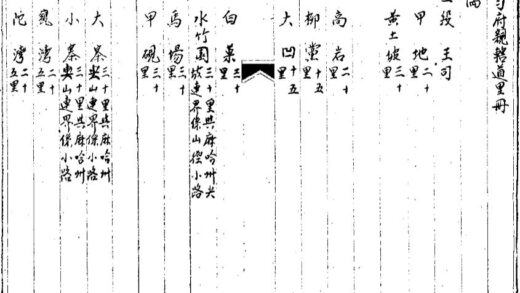 府親轄道里冊
段 王司
甲地 二十里
黄土坡 三十里
高岩 二十里
柳棠 十五里
大凹 十五里
白菓 三十里
水竹園 三十里與麻哈州尖坡連界係山徑小路
馬場 三十里
甲硯 三十里
大寨 三十里與麻哈州尖山連界係小路
小寨 三十里與麻哈州尖山連界係小路
灣 二十里
陀灣 二十五里